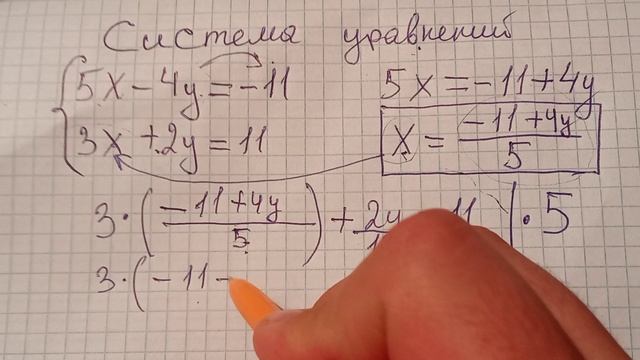 Система уравнений
5x - 4y = -11
3x + 2y = 11
5x = -11 + 4y
x = \frac{-11 + 4y}{5}
3 · (\frac{-11 + 4y}{5}) + \frac{2y}{1} 11 | · 5
3 · (-11 -